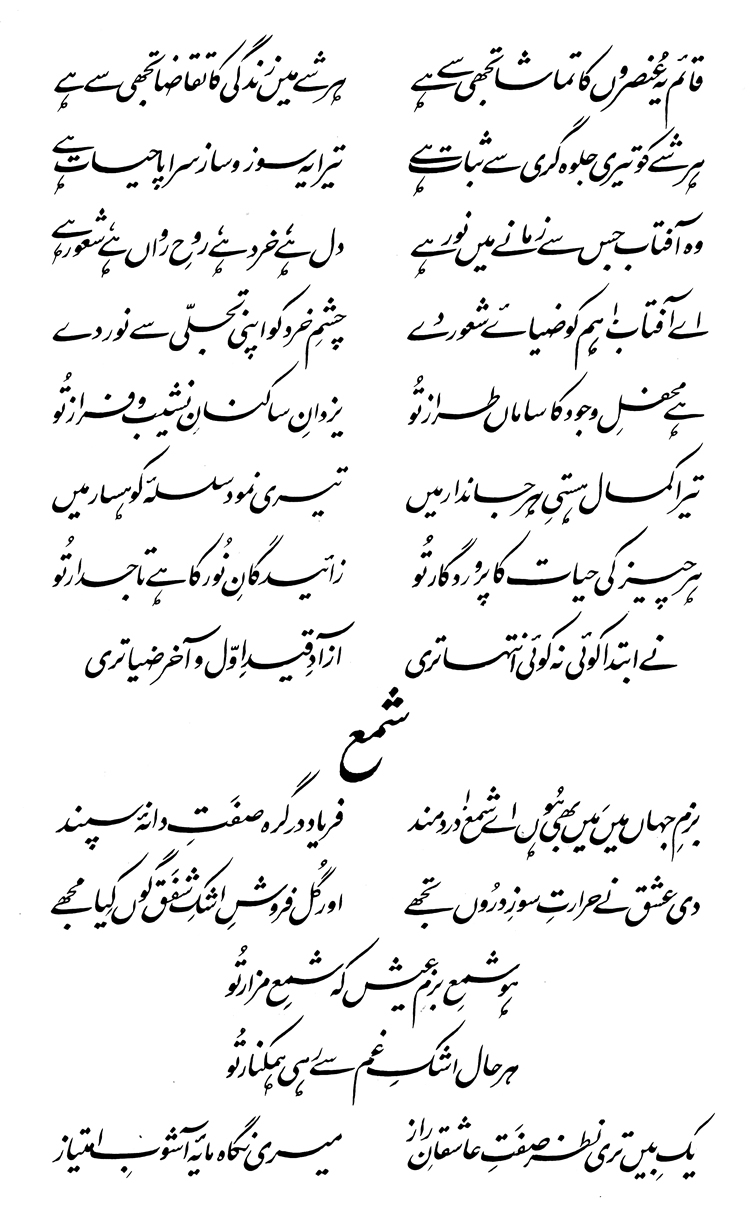 قائم یہ عُنصروں کا تماشا تجھی سے ہے ہر شے میں زندگی کا تقاضا تجھی سے ہے
ہر شے کو تیری جلوہ گری سے ثبات ہے تیرا یہ سوز و ساز سراپا حیات ہے
وہ آفتاب جس سے زمانے میں نور ہے دل ہے، خرد ہے، روحِ رواں ہے، شعور ہے
اے آفتاب! ہم کو ضیائے شعور دے چشمِ خرد کو اپنی تجلّی سے نور دے
ہے محفلِ وجود کا ساماں طراز تُو یزدانِ ساکنانِ نشیب و فراز تُو
تیرا کمال ہستیِ ہر جاندار میں تیری نمود سلسلۂ کوہسار میں
ہر چیز کی حیات کا پروردگار تُو زائیدگانِ نُور کا ہے تاجدار تُو
نے ابتدا کوئی نہ کوئی انتہا تری آزادِ قیدِ اوّل و آخر ضیا تری
شمع
بزمِ جہاں میں مَیں بھی ہُوں اے شمع! دردمند فریاد در گرہ صفَتِ دانۂ سپند
دی عشق نے حرارتِ سوزِ درُوں تجھے اور گُل فروشِ اشکِ شفَق گوں کِیا مجھے
ہو شمعِ بزمِ عیش کہ شمعِ مزار تُو
ہر حال اشکِ غم سے رہی ہمکنار تُو
یک بِیں تری نظر صفَتِ عاشقانِ راز میری نگاہ مایۂ آشوبِ امتیاز